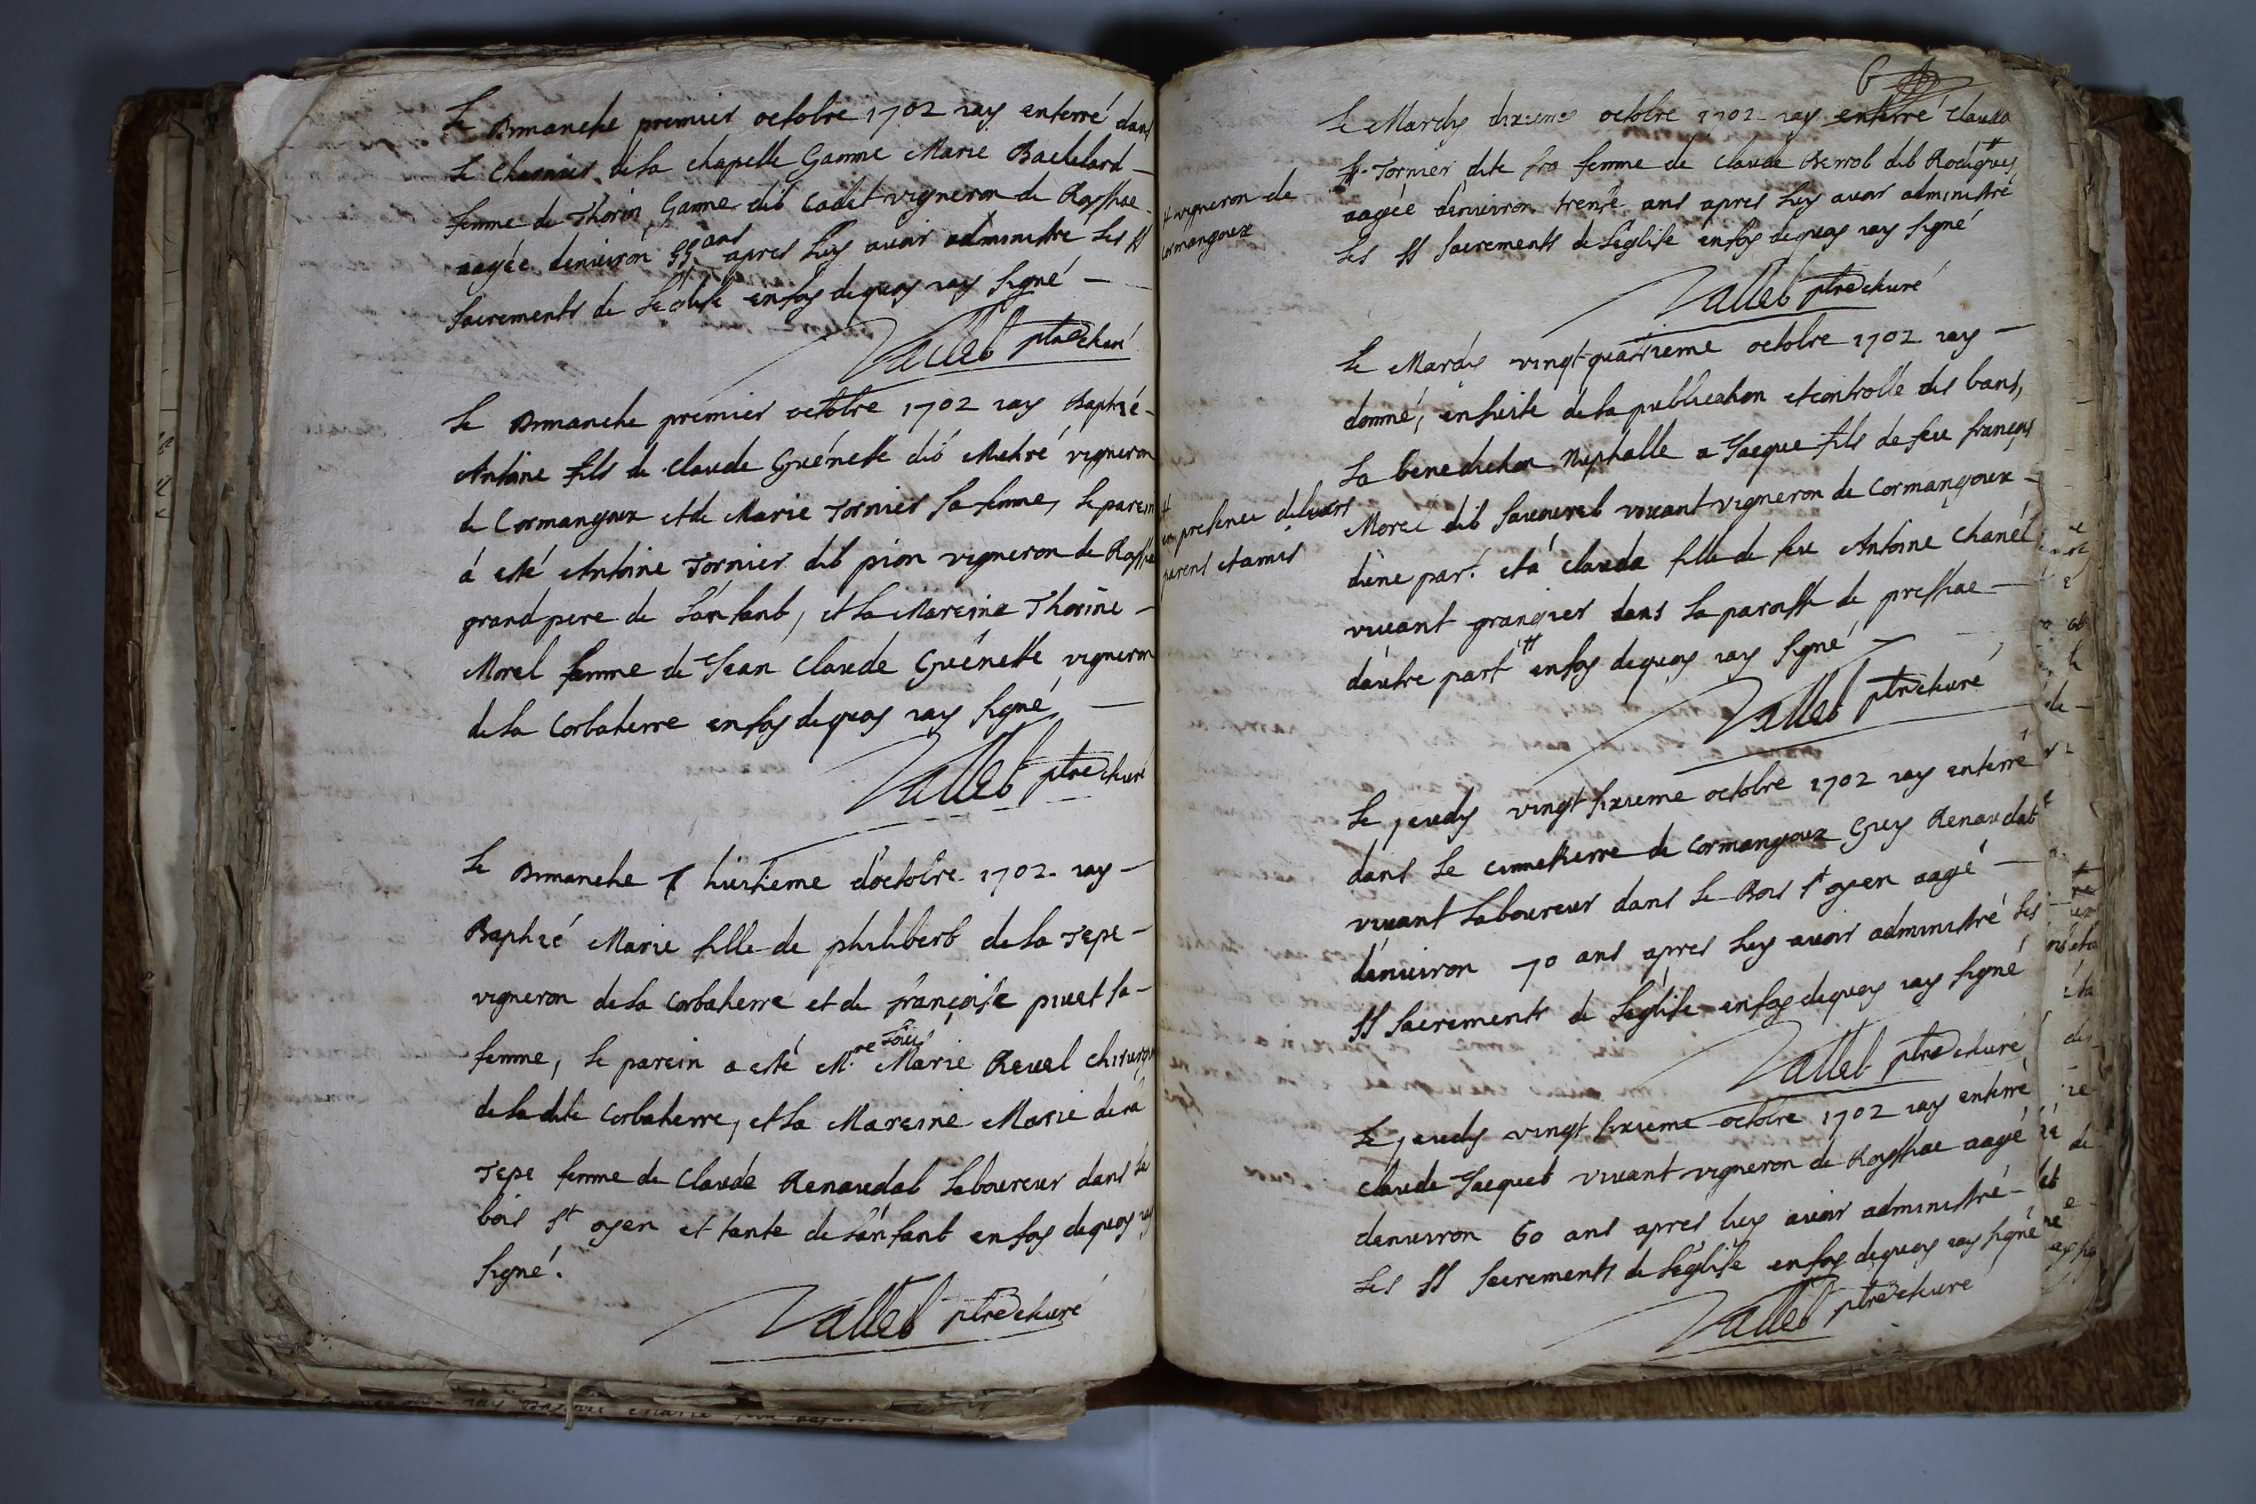 Le Dimanche premier octobre 1702 iay enterré dans
le Charnier de la chapelle Ganne Marie Bachelard
femme de Thorin Ganne dit Cadet vigneron de Roissiac
aagée denuiron 55 ans apres luy auoir administré les SS
Sacrements de l'eglise enfoy dequoy iay signé
Vallet ptre & curé
Le Dimanche premier octobre 1702 iay Baptizé
Antoine fils de Claude Guénette dit vigneron
de Cormangoux et de Marie Tornier sa femme, le parein
á esté Antoine Tornier dit pion vigneron de
grand pere de l'anfant, et la Mareine Thorine
Morel femme de Jean Claude Guénette vigneron
de la Corbaterre enfoy dequoy iay signé
Vallet ptre & curé
Le Dimanche huitieme d'octobre 1702 iay
Baptizé Marie fille de philibert de la Tepe
vigneron de la Corbaterre et de françoise piuet sa
femme, le parein a esté Mre Loüis Marie Reuel chirurgien
de ladite Corbaterre, et la Mareine Marie de la
Tepe femme de Claude Renaudat laboureur dans le
bois st oyen et tante de l'anfant enfoy dequoy iay
signé.
Vallet ptre & curé
6
Le Mardy dixieme octobre 1702 iay enterré Clauda
Tornier dite fra femme de Claude dit
aagée denuiron trente ans apres luy auoir administré
les SS Sacrements de l'eglise enfoy dequoy iay signé
# vigneron de
Cormangoux
Vallet ptre & curé
Le Mardy vingtquatrieme octobre 1702 iay
donné, ensuite de la publication et controlle des bans,
la benediction Nuptialle a Jacque fils de feu françois
Morel dit Sauouret viuant vigneron de Cormangoux
d'une part. et á Clauda fille de feu Antoine Chanel
viuant grangier dans la paroisse de pressiac
dautre part # enfoy dequoy iay signé
# en presence de leurs
parens et amis
Vallet ptre & curé
Le jeudy vingt sixieme octobre 1702 iay enterré
dans le cimetierre de Cormangoux Guy Renaudat
viuant laboureur dans le Bois st oyen aagé
denuiron 70 ans apres luy auoir administré les
SS Sacrements de l'eglise enfoy dequoy iay signé
Vallet ptre & curé
Le jeudy vingt sixieme octobre 1702 iay enterré
Claude Jacquet viuant vigneron de Royssiac aagé
denuiron 60 ans apres luy auoir administré
les SS Sacrements de l'eglise enfoy dequoy iay signé
Vallet ptre & curé